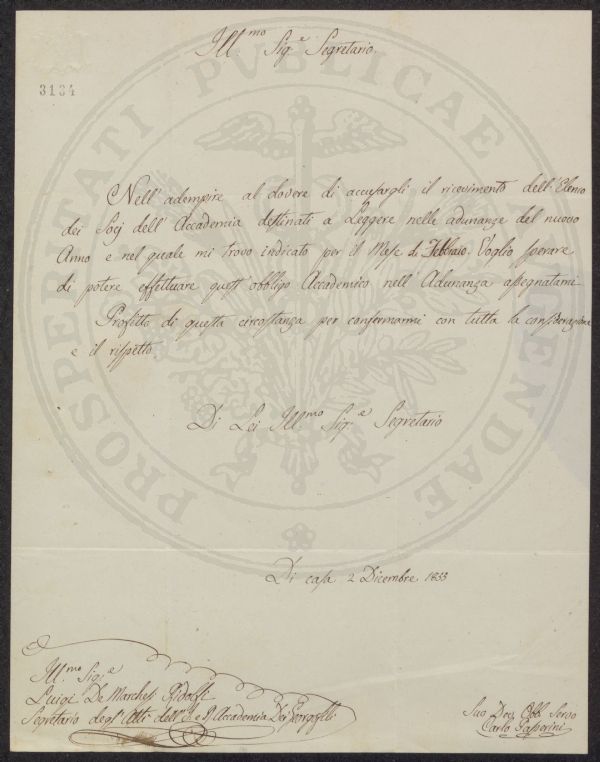 Ill.mo Sig.e Segretario.
3134
Nell' adempire al dovere di accusargli il ricevimento dell' Elenco
dei Socj dell' Accademia destinati a Leggere nelle adunanze del nuovo
Anno e nel quale mi trovo indicato per il Mese di Febbraio. Voglio sperare
di potere effettuare quest' obbligo Accademico nell' Adunanza assegnatami
Profitto di questa circostanza per confermarmi con tutta la considerazione
e il rispetto
Di Lei Ill.mo Sig.e Segretario
Di casa 2 Dicembre 1833
Ill.mo Sig.e
Luigi De Marchesi Ridolfi
Segretario degl' Atti dell' I. e R. Accademia Dei Georgofili
Suo Dev. Obb. Servo
Carlo Passerini
PROSPERITATI PUBLICAE AUGENDAE